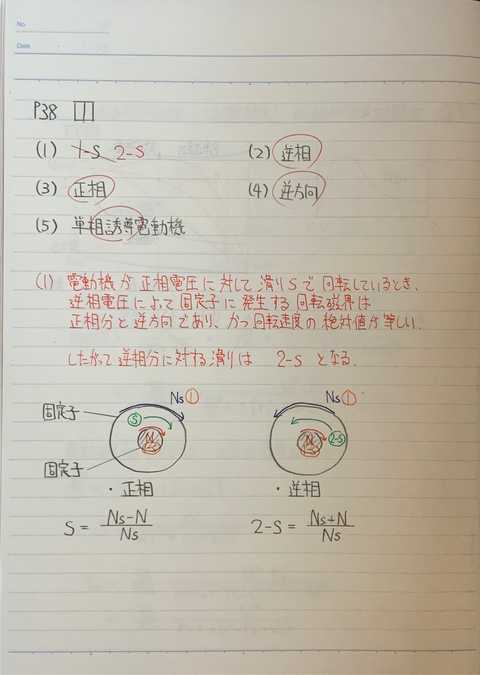 No.
Date
P38 1
(1) 1-S 2-S (2) 逆相
(3) 正相 (4) 逆方向
(5) 単相誘導電動機
(1) 電動機が正相電圧に対して滑りsで回転しているとき、
逆相電圧によって固定子に発生する回転磁界は
正相分と逆方向であり、かつ回転速度の絶対値が等しい.
したがって逆相分に対する滑りは 2-s となる.
Ns ① Ns ①
固定子 S N N 2-S
固定子
・正相 ・逆相
S = Ns-N / Ns 2-S = Ns+N / Ns